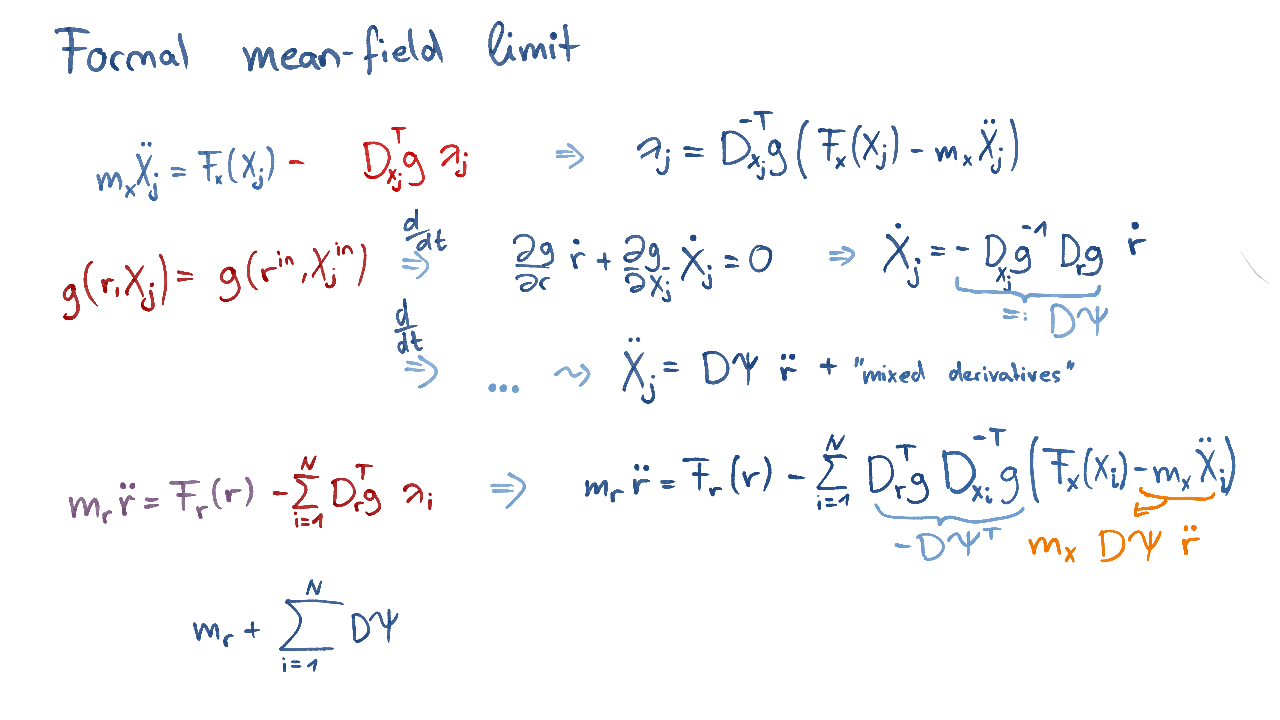 Formal mean-field limit
m_x Ẍ_j = F_x(X_j) - D_{x_j}^T g λ_j ⇒ λ_j = D_{x_j}^{-T} g (F_x(X_j) - m_x Ẍ_j)
g(r, X_j) = g(r^{in}, X_j^{in}) d/dt ⇒ ∂g/∂r ṙ + ∂g/∂X_j Ẋ_j = 0 ⇒ Ẋ_j = - D_{x_j} g^{-1} D_r g ṙ
=: DΨ
d/dt ⇒ ... ⇝ Ẍ_j = DΨ r̈ + "mixed derivatives"
m_r r̈ = F_r(r) - ∑_{i=1}^N D_r^T g λ_i ⇒ m_r r̈ = F_r(r) - ∑_{i=1}^N D_r^T g D_{x_i}^{-T} g (F_x(X_i) - m_x Ẍ_i)
-DΨ^T m_x DΨ r̈
m_r + ∑_{i=1}^N DΨ